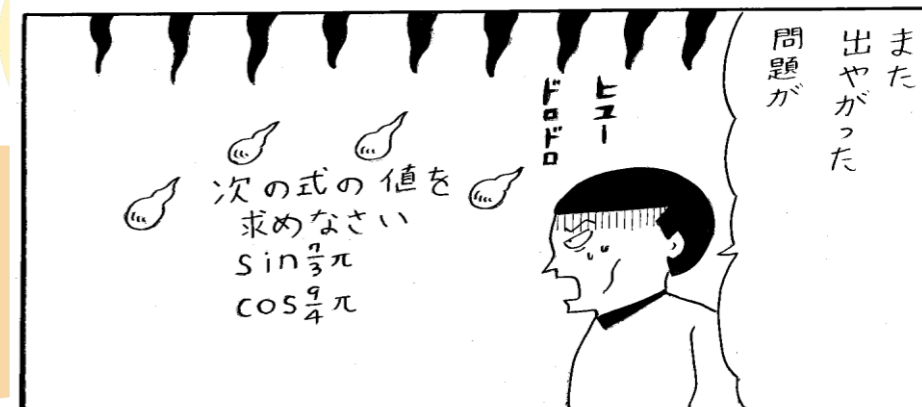 また
出やがった
問題が
ヒュー
ドロドロ
次の式の値を
求めなさい
sin 7/3 π
cos 9/4 π